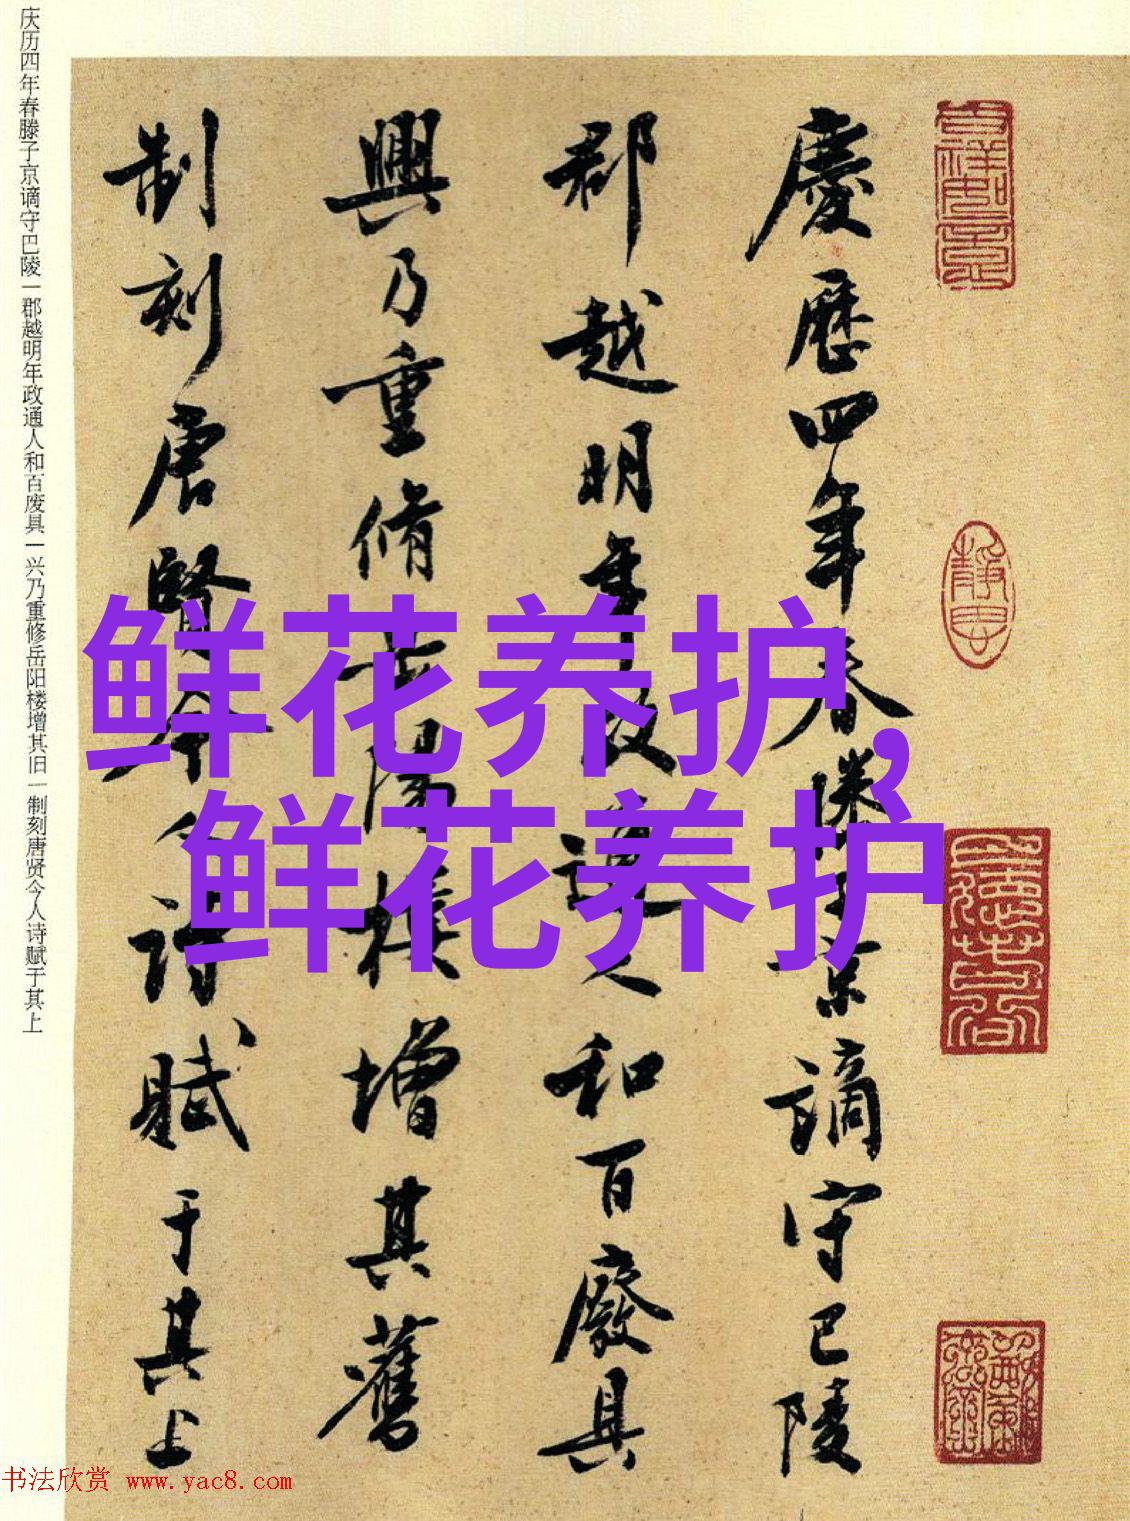 庆历四年春滕子京谪守巴陵一郡越明年政通人和百废具一兴乃重修岳阳楼增其旧一制刻唐贤今人诗赋于其上
慶歷四年春滕子京謫守巴陵
郡越明年政通人和百廢具
興乃重脩岳陽樓增其舊
制刻唐賢今人詩賦于其上
鲜花养护,
鲜花养护
书法欣赏 www.yac8.com